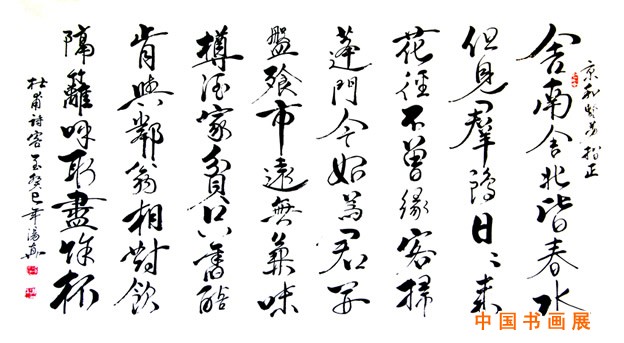 指正
舍南舍北皆春水
但見羣鷗日々来
花徑不曾緣客掃
蓬門今始為君開
盤飧市遠無兼味
樽酒家貧只舊醅
肯與鄰翁相對飲
隔籬呼取盡餘杯
杜甫詩客至癸巳年湯
中国书画展